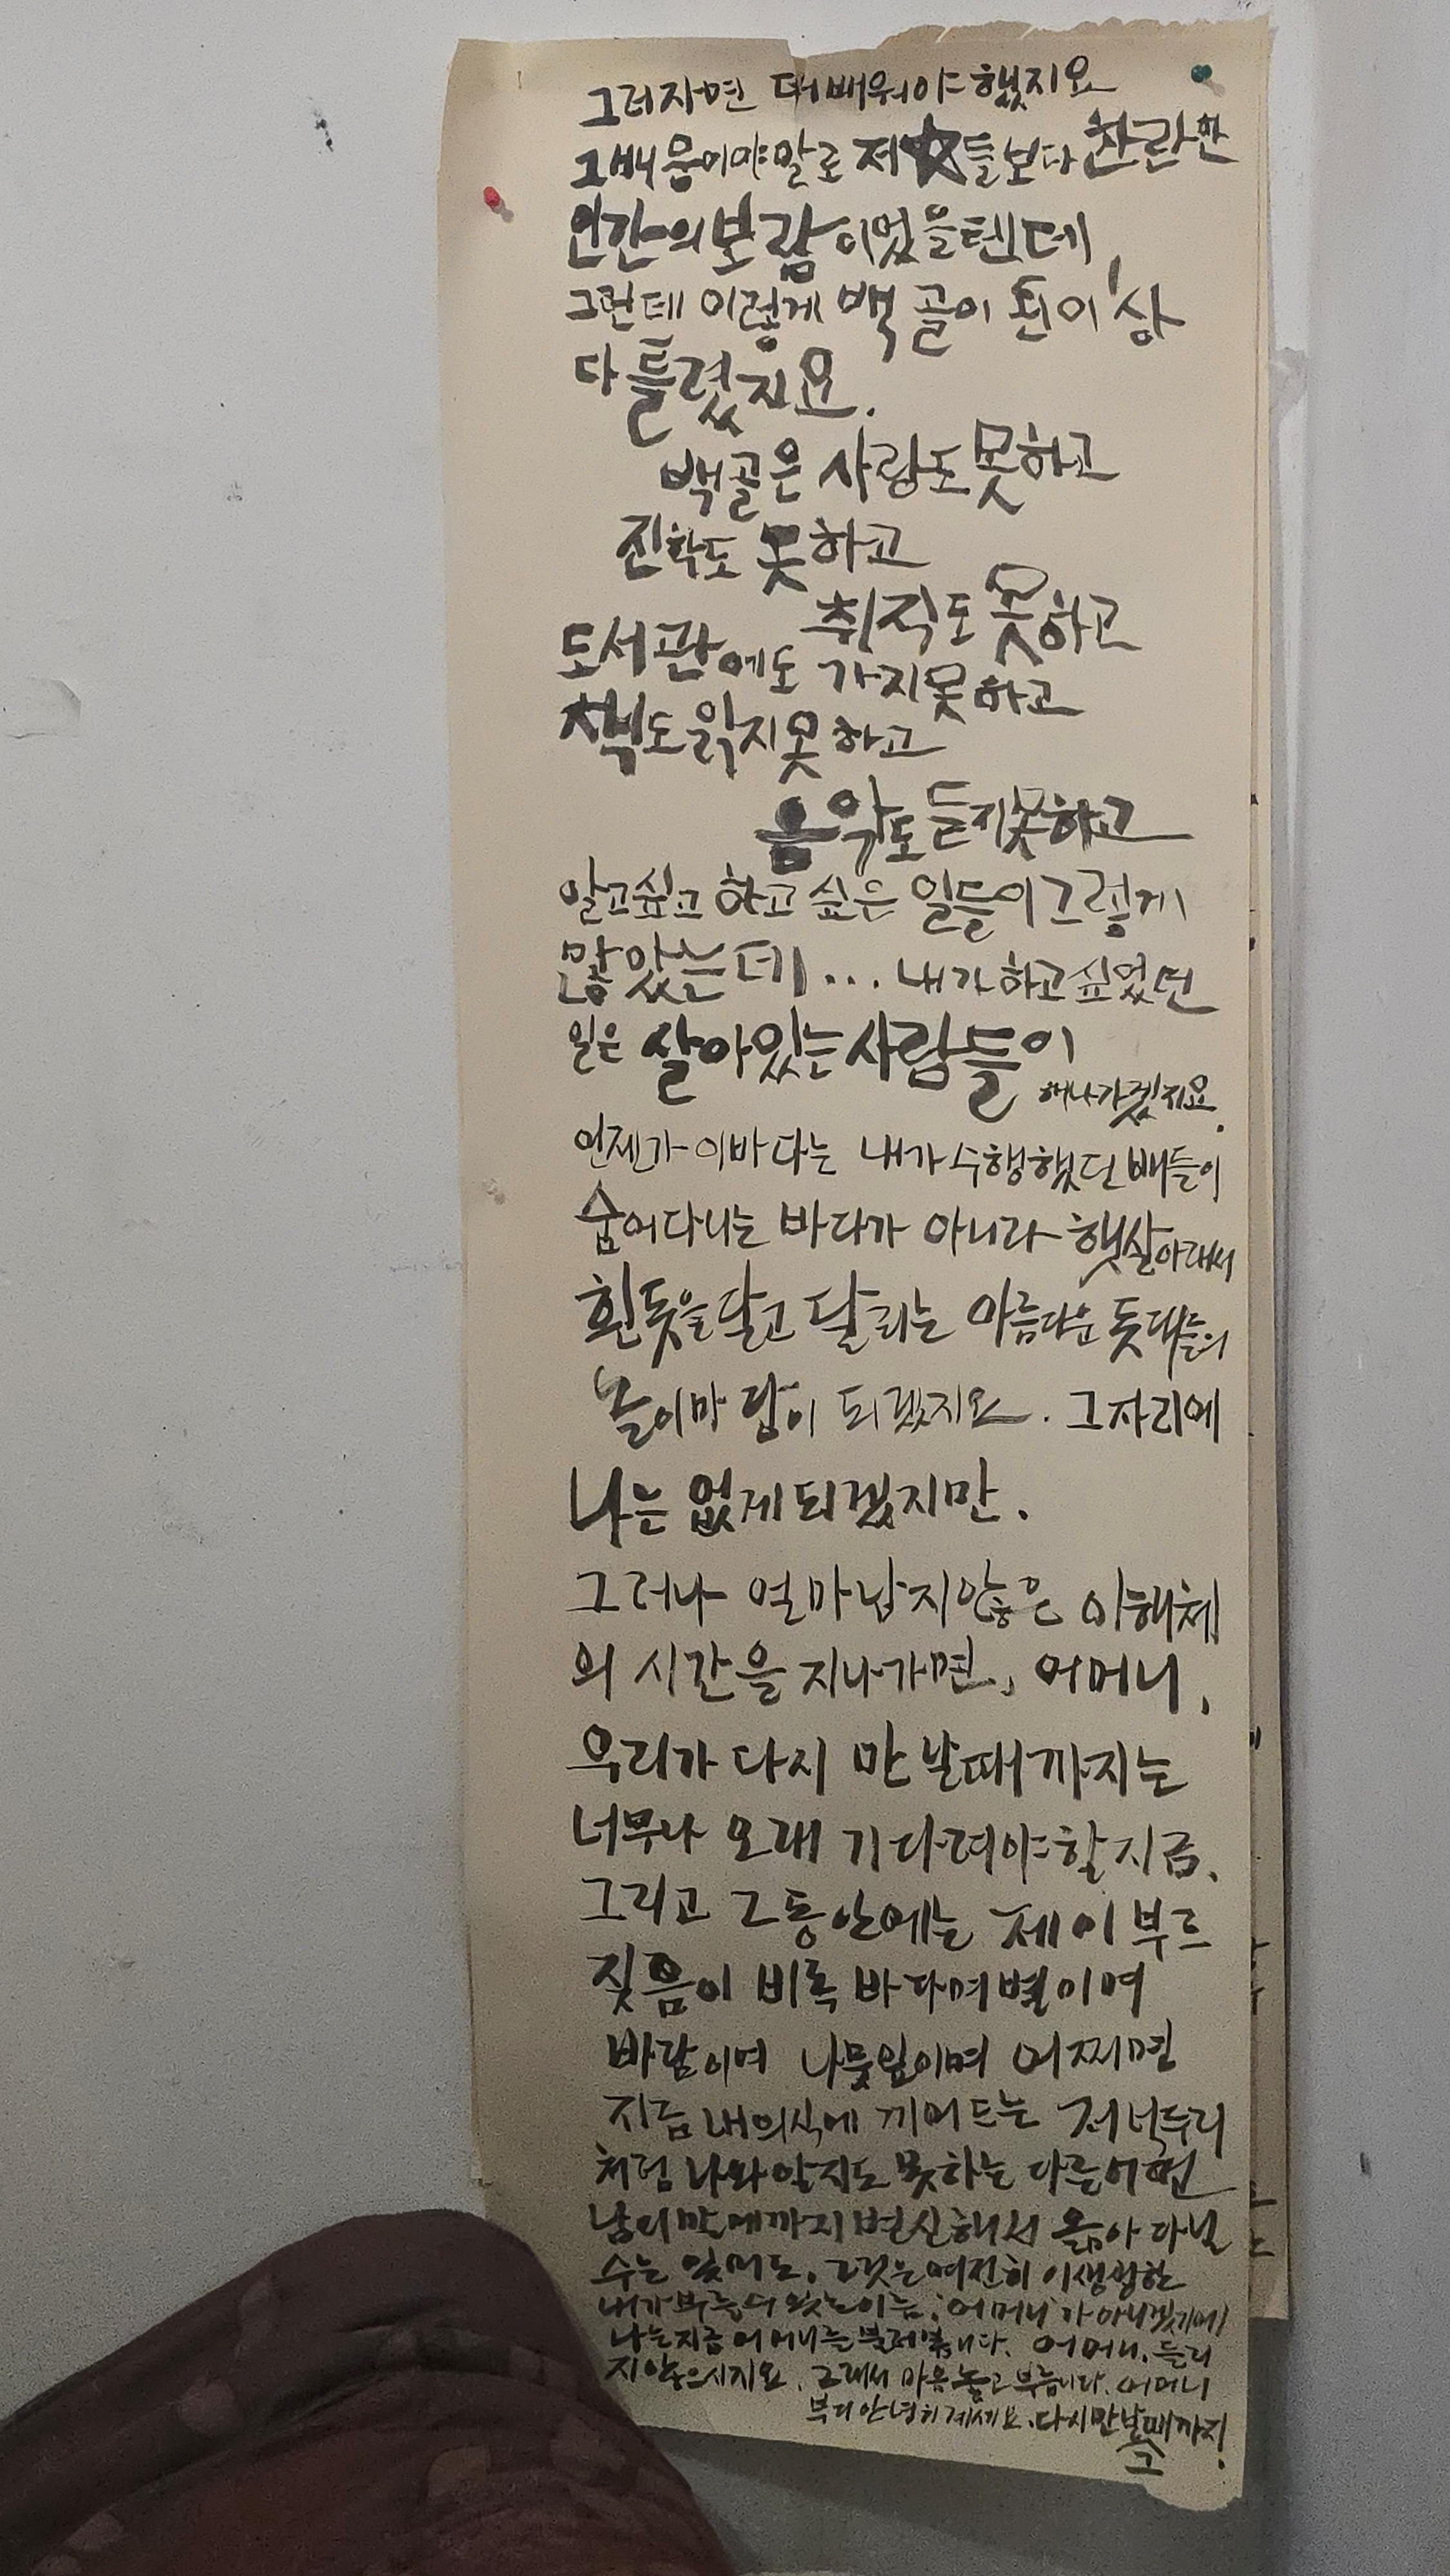 그러자면 더 배워야 했지요
그 배움이야말로 저 ☆들보다 찬란한
인간의 보람이었을텐데,
그런데 이렇게 백골이 된 이상
다 틀렸지요.
백골은 사랑도 못하고
진학도 못하고
취직도 못하고
도서관에도 가지 못하고
책도 읽지 못하고
음악도 듣지 못하고
알고싶고 하고 싶은 일들이 그렇게
많았는데... 내가 하고 싶었던
일은 살아있는 사람들이
해나가겠지요.
언젠가 이 바다는 내가 수행했던 배들이
숨어다니는 바다가 아니라 햇살아래서
흰 돛을 달고 달리는 아름다운 돛대들의
놀이마당이 되겠지요. 그 자리에
나는 없게 되겠지만.
그러나 얼마 남지 않은 이 해체
의 시간을 지나가면, 어머니,
우리가 다시 만날 때까지는
너무나 오래 기다려야 할 지금,
그리고 그 동안에는 제 이 부르
짖음이 비록 바다며 별이며
바람이며 나뭇잎이며 어쩌면
지금 내 의식에 끼어드는 저 넋두리
처럼 나와 알지도 못하는 다른 어떤
남의 말에까지 변신해서 옮아 다닐
수는 있어도, 그것은 여전히 이 생생한
내가 부를 수 있는 이름, '어머니'가 아니겠기에
나는 지금 어머니를 부릅니다. 어머니, 들리
지 않으시지요. 그래서 마음 놓고 부릅니다. 어머니
부디 안녕히 계세요. 다시 만날 때까지.